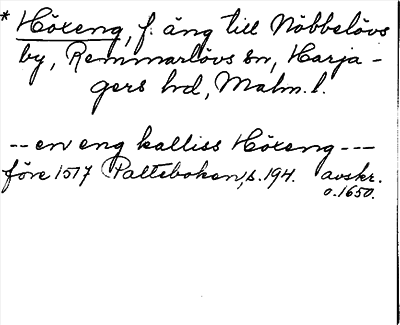 * Höxeng, f. äng till Nöbbelövs
by, Remmarlövs sn, Harja-
gers hd, Malm.l.
-- en eng kalliss Höxeng ---
före 1517 Palteboken, s.194. avskr.
o.1650.